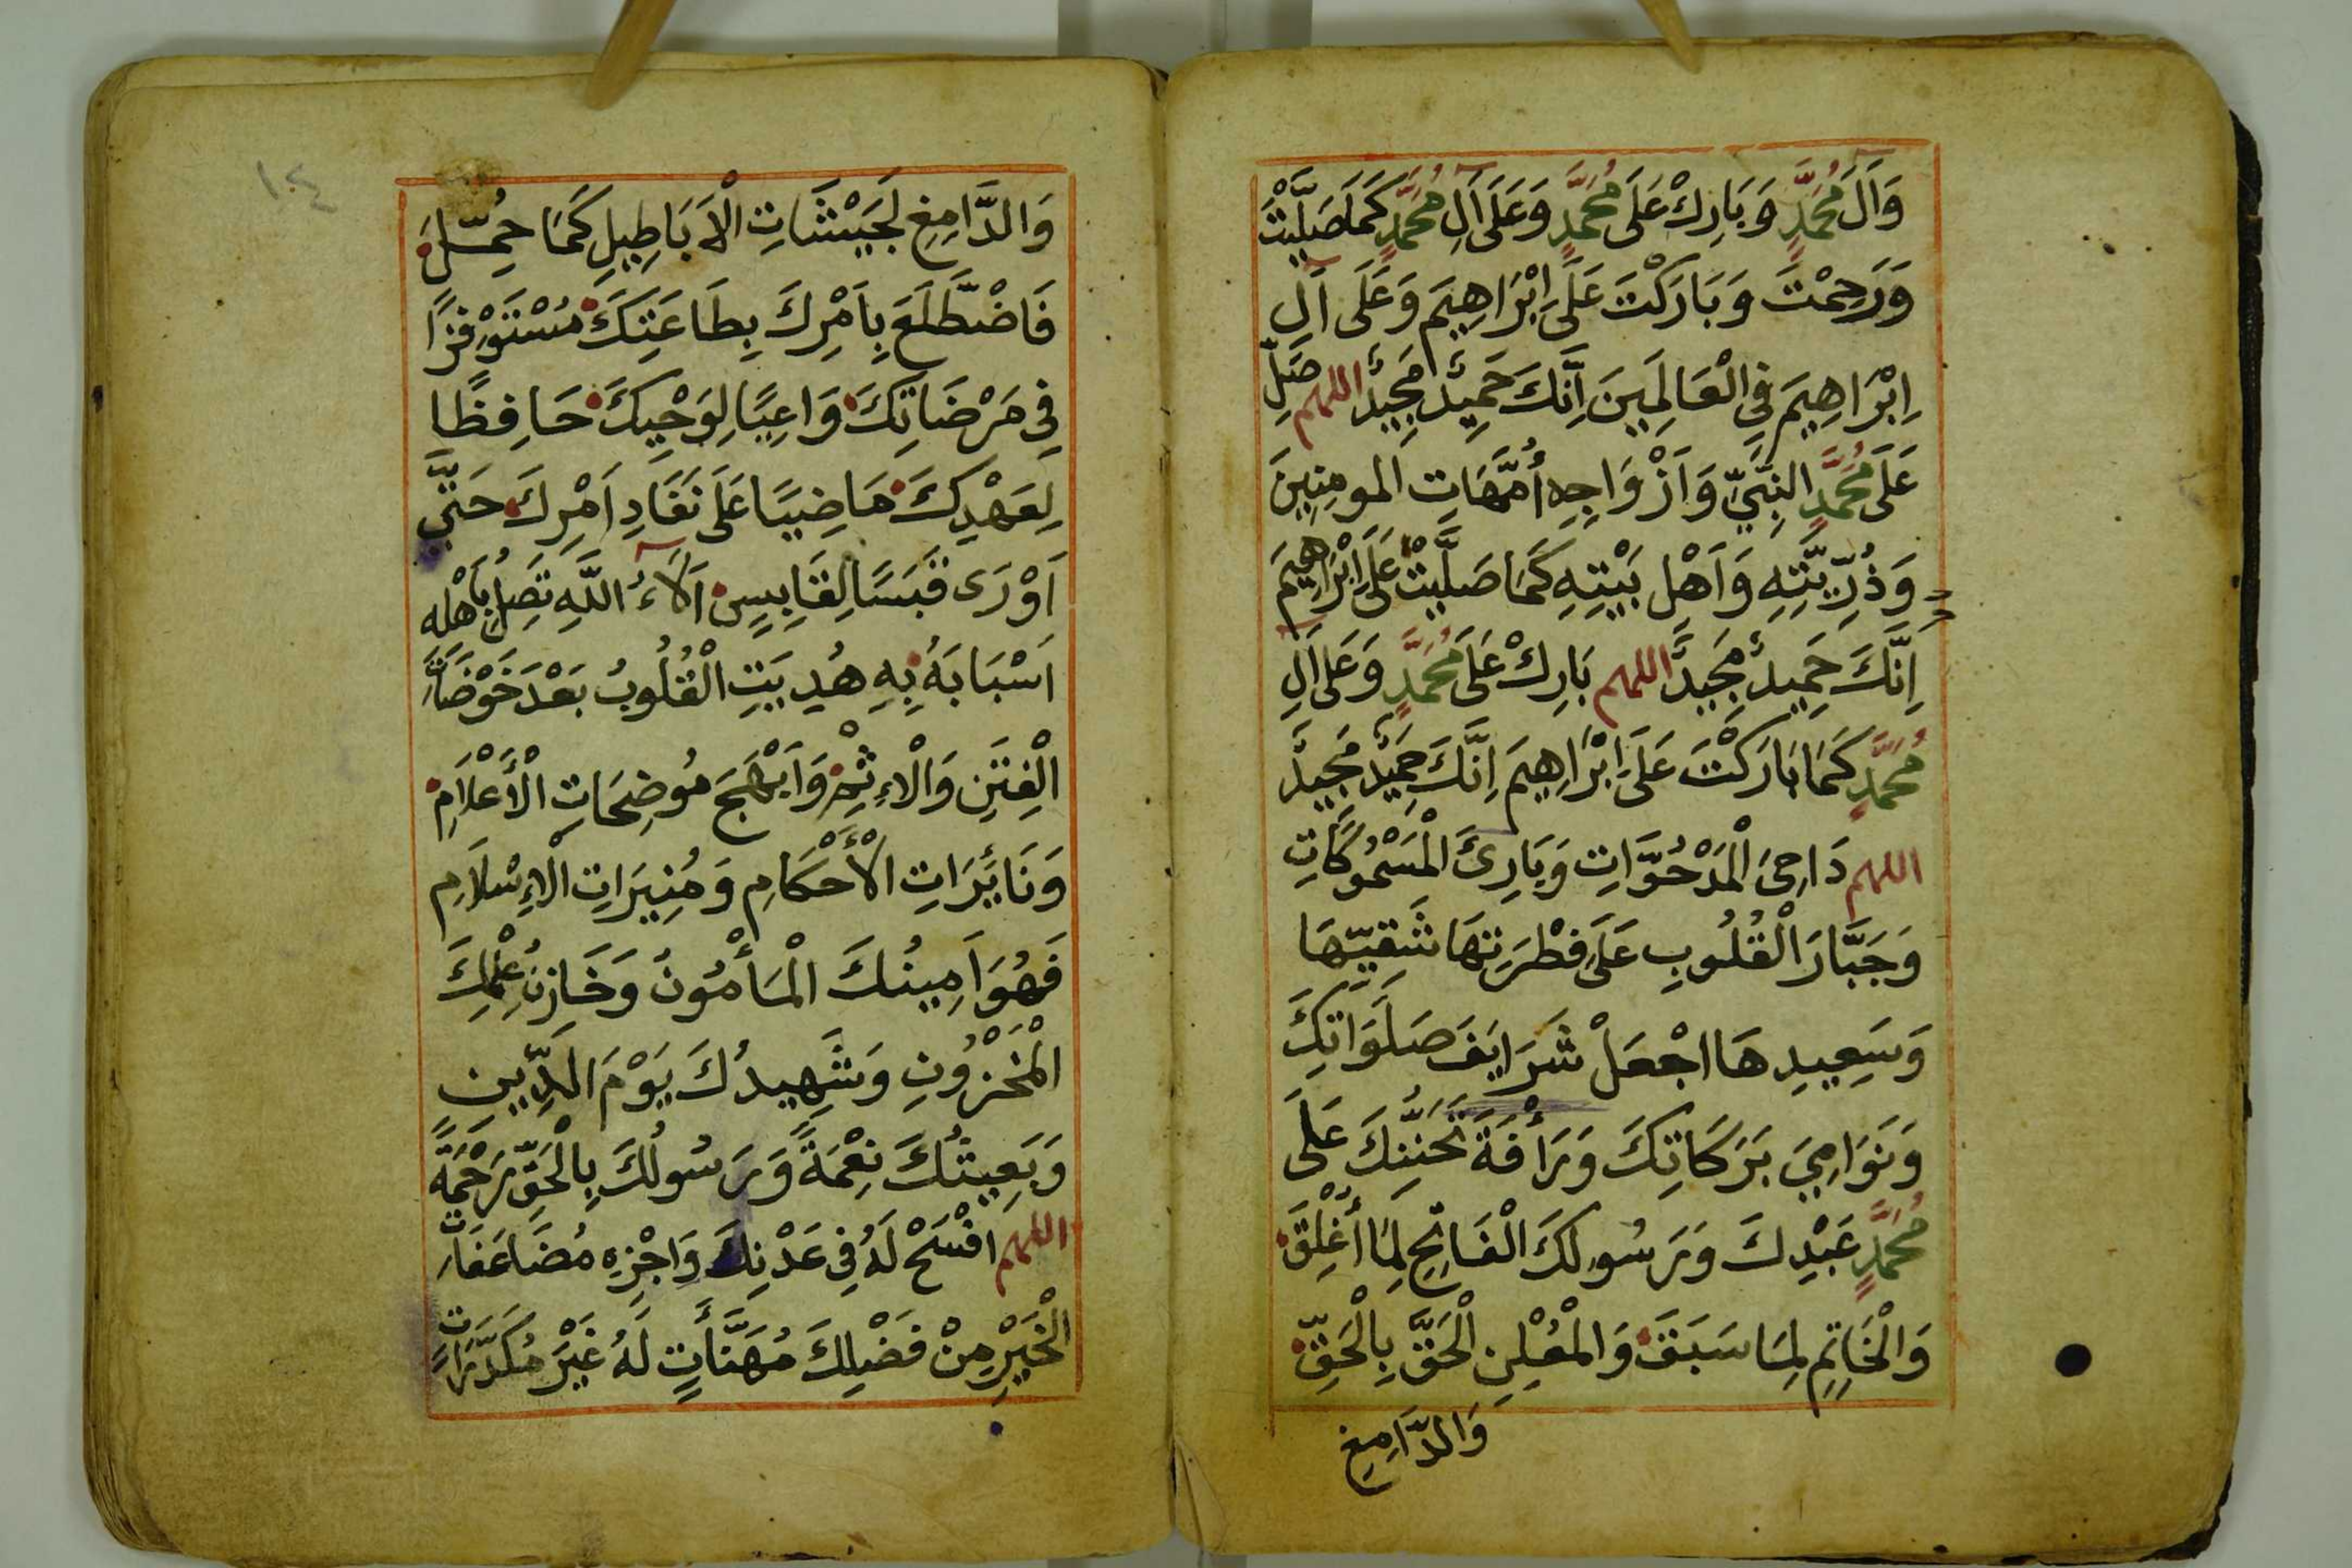 وَآلِ مُحَمَّدٍ وَبَارِكْ عَلَى مُحَمَّدٍ وَعَلَى آلِ مُحَمَّدٍ كَمَا صَلَّيْتَ
وَرَحِمْتَ وَبَارَكْتَ عَلَى اِبْرَاهِيمَ وَعَلَى آلِ
اِبْرَاهِيمَ فِي الْعَالَمِينَ اِنَّكَ حَمِيدٌ مَجِيدٌ اللهم صَلِّ
عَلَى مُحَمَّدٍ النَّبِيِّ وَاَزْوَاجِهِ أُمَّهَاتِ المومِنِينَ
وَذُرِّيَّتِهِ وَاَهْلِ بَيْتِهِ كَمَا صَلَّيْتَ عَلَى اِبْرَاهِيمَ
اِنَّكَ حَمِيدٌ مَجِيدٌ اللهم بَارِكْ عَلَى مُحَمَّدٍ وَعَلَى آلِ
مُحَمَّدٍ كَمَا بَارَكْتَ عَلَى اِبْرَاهِيمَ اِنَّكَ حَمِيدٌ مَجِيدٌ
اللهم دَاحِيَ الْمَدْحُوَّاتِ وَبَارِئَ الْمَسْمُوكَاتِ
وَجَبَّارَ الْقُلُوبِ عَلَى فِطْرَتِهَا شَقِيِّهَا
وَسَعِيدِهَا اجْعَلْ شَرَايَفَ صَلَوَاتِكَ
وَنَوَامِيَ بَرَكَاتِكَ وَرَأْفَةَ تَحَنُّنِكَ عَلَى
مُحَمَّدٍ عَبْدِكَ وَرَسُولِكَ الْفَاتِحِ لِمَا أُغْلِقَ
وَالْخَاتِمِ لِمَا سَبَقَ وَالْمُعْلِنِ الْحَقَّ بِالْحَقِّ
وَالدَّامِغِ
١٠٤
وَالدَّامِغِ لِجَيْشَاتِ الْاَبَاطِيلِ كَمَا حُمِّلَ
فَاضْطَلَعَ بِاَمْرِكَ بِطَاعَتِكَ مُسْتَوْفِزًا
فِي مَرْضَاتِكَ وَاعِيًا لِوَحْيِكَ حَافِظًا
لِعَهْدِكَ مَاضِيًا عَلَى نَفَادِ اَمْرِكَ حَتَّى
اَوْرَى قَبَسًا لِقَابِسٍ آلَاءُ اللَّهِ تَصِلُ بِاَهْلِهِ
اَسْبَابَهُ بِهِ هُدِيَتِ الْقُلُوبُ بَعْدَ خَوْضَاتِ
الْفِتَنِ وَالْاِثْمِ وَاَبْهَجَ مُوضِحَاتِ الْأَعْلَامِ
وَنَائِرَاتِ الْأَحْكَامِ وَمُنِيرَاتِ الْاِسْلَامِ
فَهُوَ اَمِينُكَ الْمَأْمُونُ وَخَازِنُ عِلْمِكَ
الْمَخْزُونِ وَشَهِيدُكَ يَوْمَ الدِّينِ
وَبَعِيثُكَ نِعْمَةً وَرَسُولُكَ بِالْحَقِّ رَحْمَةً
اللهم افْسَحْ لَهُ فِي عَدْنِكَ وَاجْزِهِ مُضَاعَفَاتِ
الْخَيْرِ مِنْ فَضْلِكَ مُهَنَّأَتٍ لَهُ غَيْرَ مُكَدَّرَاتٍ